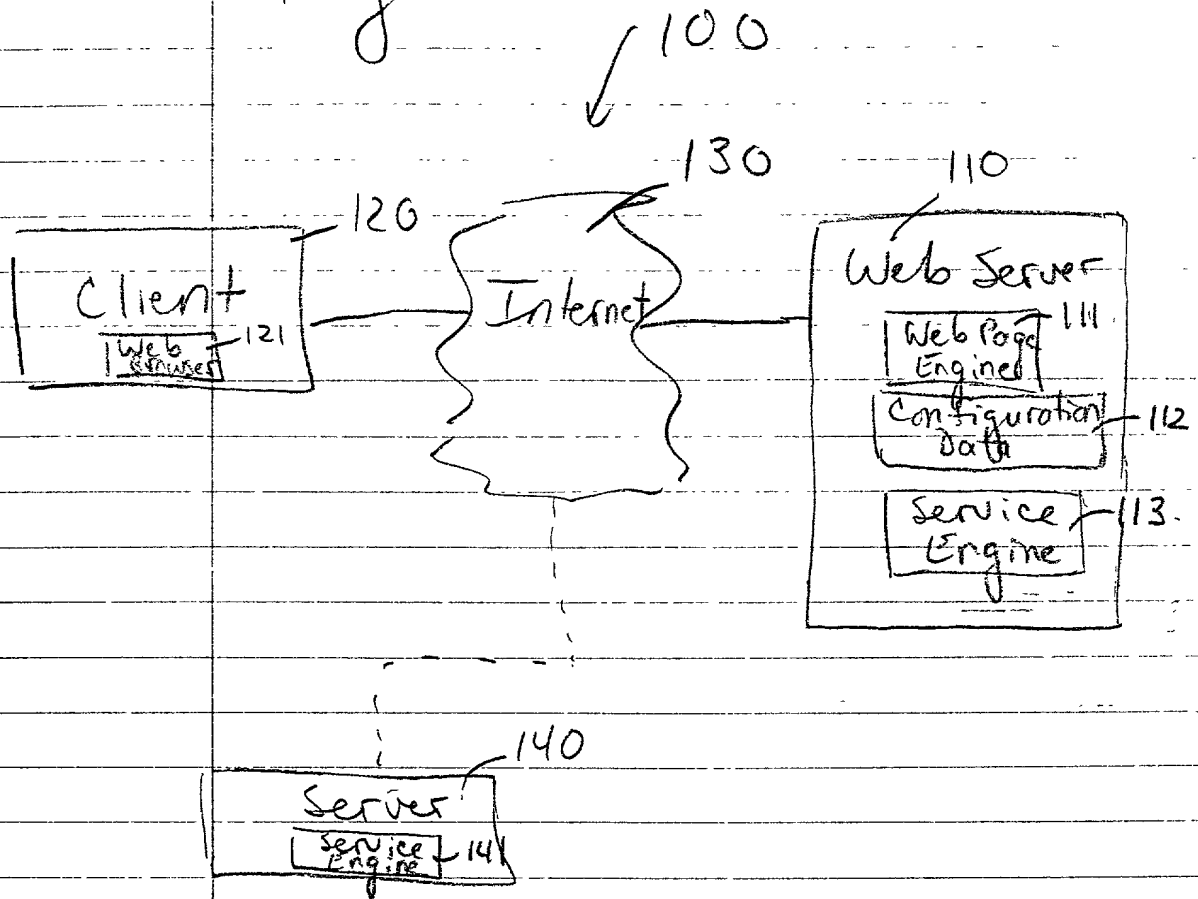 100
130
110
120
Client
Web
121
Internet
Web Server
Web Page
Engine
111
Configuration
Data
112
Service
Engine
113.
140
Server
Service
Engine
141